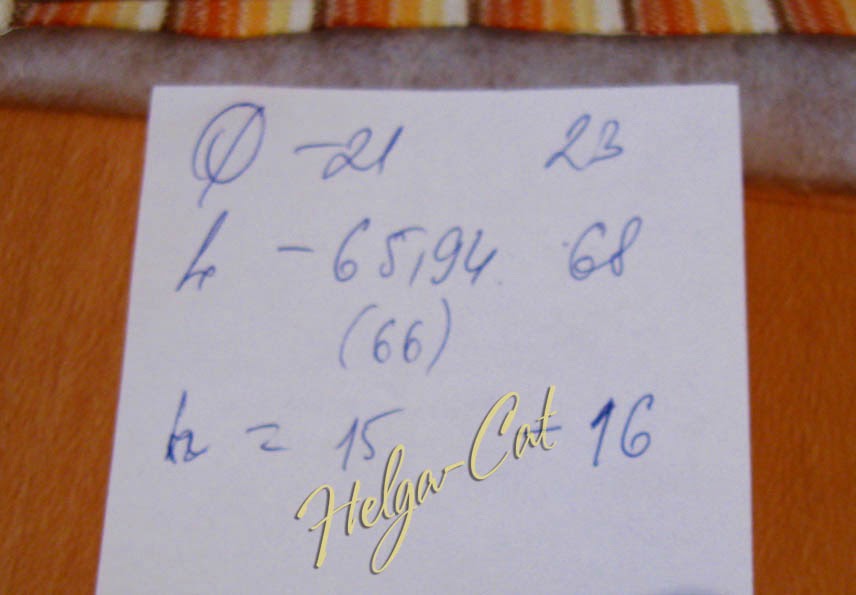 Ø - 21 23
L - 65,94 68
(66)
h = 15 - 16
Helga-Cat